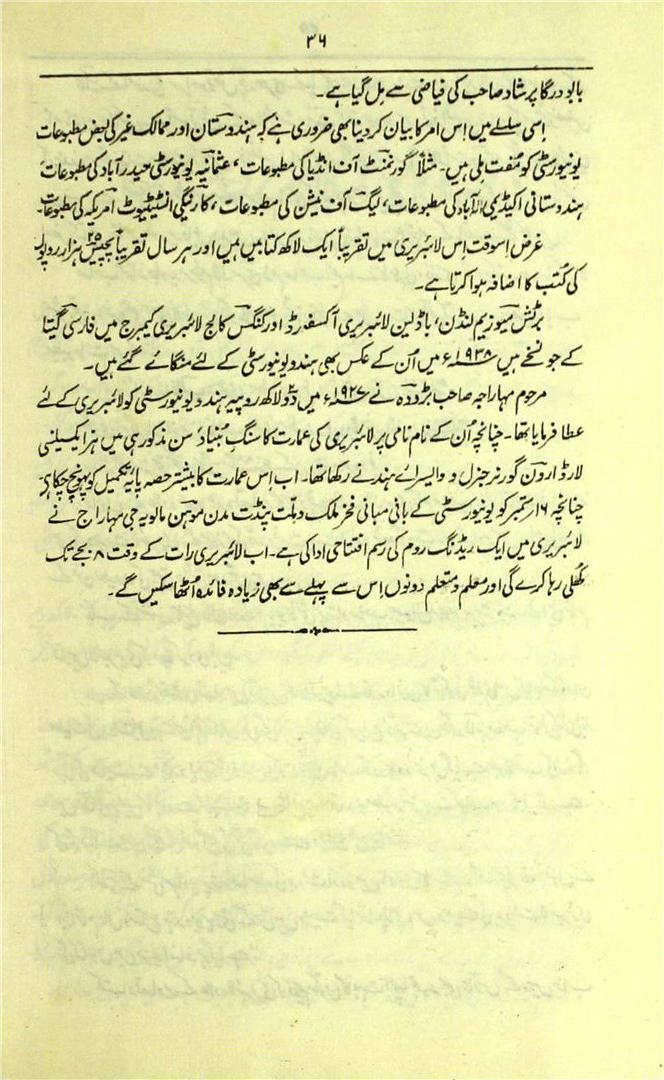 ۳۶
بابو درگا پرشاد صاحب کی فیاضی سے مِل گیا ہے۔
اِسی سلسلے میں اِس امر کا بیان کر دینا بھی ضروری ہے کہ ہندوستان اور ممالک غیر کی بعض مطبوعات
یونیورسٹی کو مُفت ملی ہیں۔ مثلاً گورنمنٹ آف انڈیا کی مطبوعات، عثمانیہ یونیورسٹی حیدرآباد کی مطبوعات،
ہندوستانی اکیڈیمی الہ آباد کی مطبوعات، لیگ آف نیشن کی مطبوعات، کارنیگی انسٹیٹیوٹ امریکہ کی مطبوعات۔
غرض اِسوقت اِس لائبریری میں تقریباً ایک لاکھ کتابیں ہیں اور ہر سال تقریباً پچیس ۲۵ ہزار روپوں
کی کُتب کا اضافہ ہوا کرتا ہے۔
برٹش میوزیم لنڈن، باڈلین لائبریری آکسفرڈ اور کنگس کالج لائبریری کیمبرج میں فارسی گیتا
کے جو نسخے ہیں ۱۹۳۸ء میں اُن کے عکس بھی ہندو یونیورسٹی کے لئے منگائے گئے ہیں۔
مرحوم مہاراجہ صاحب بڑودہ نے ۱۹۲۷ء میں دو لاکھ روپیہ ہندو یونیورسٹی کو لائبریری کے لئے
عطا فرمایا تھا۔ چنانچہ اُن کے نام نامی پر لائبریری کی عمارت کا سنگِ بُنیاد سن مذکور ہی میں ہز ایکسیلنسی
لارڈ اردن گورنر جنرل و وایسرائے ہند نے رکھا تھا۔ اب اِس عمارت کا بیشتر حصہ پایۂ تکمیل کو پہونچ چکا ہے
چنانچہ ۱۶ ستمبر کو یونیورسٹی کے بانی مبانی فخرِ ملک و ملّت پنڈت مدن موہن مالویہ جی مہاراج نے
لائبریری میں ایک ریڈنگ روم کی رسم افتتاحی ادا کی ہے۔ اب لائبریری رات کے وقت ۸ بجے تک
کُھلی رہا کرے گی اور معلم و متعلم دونوں اِس سے پہلے سے بھی زیادہ فائدہ اُٹھا سکیں گے۔